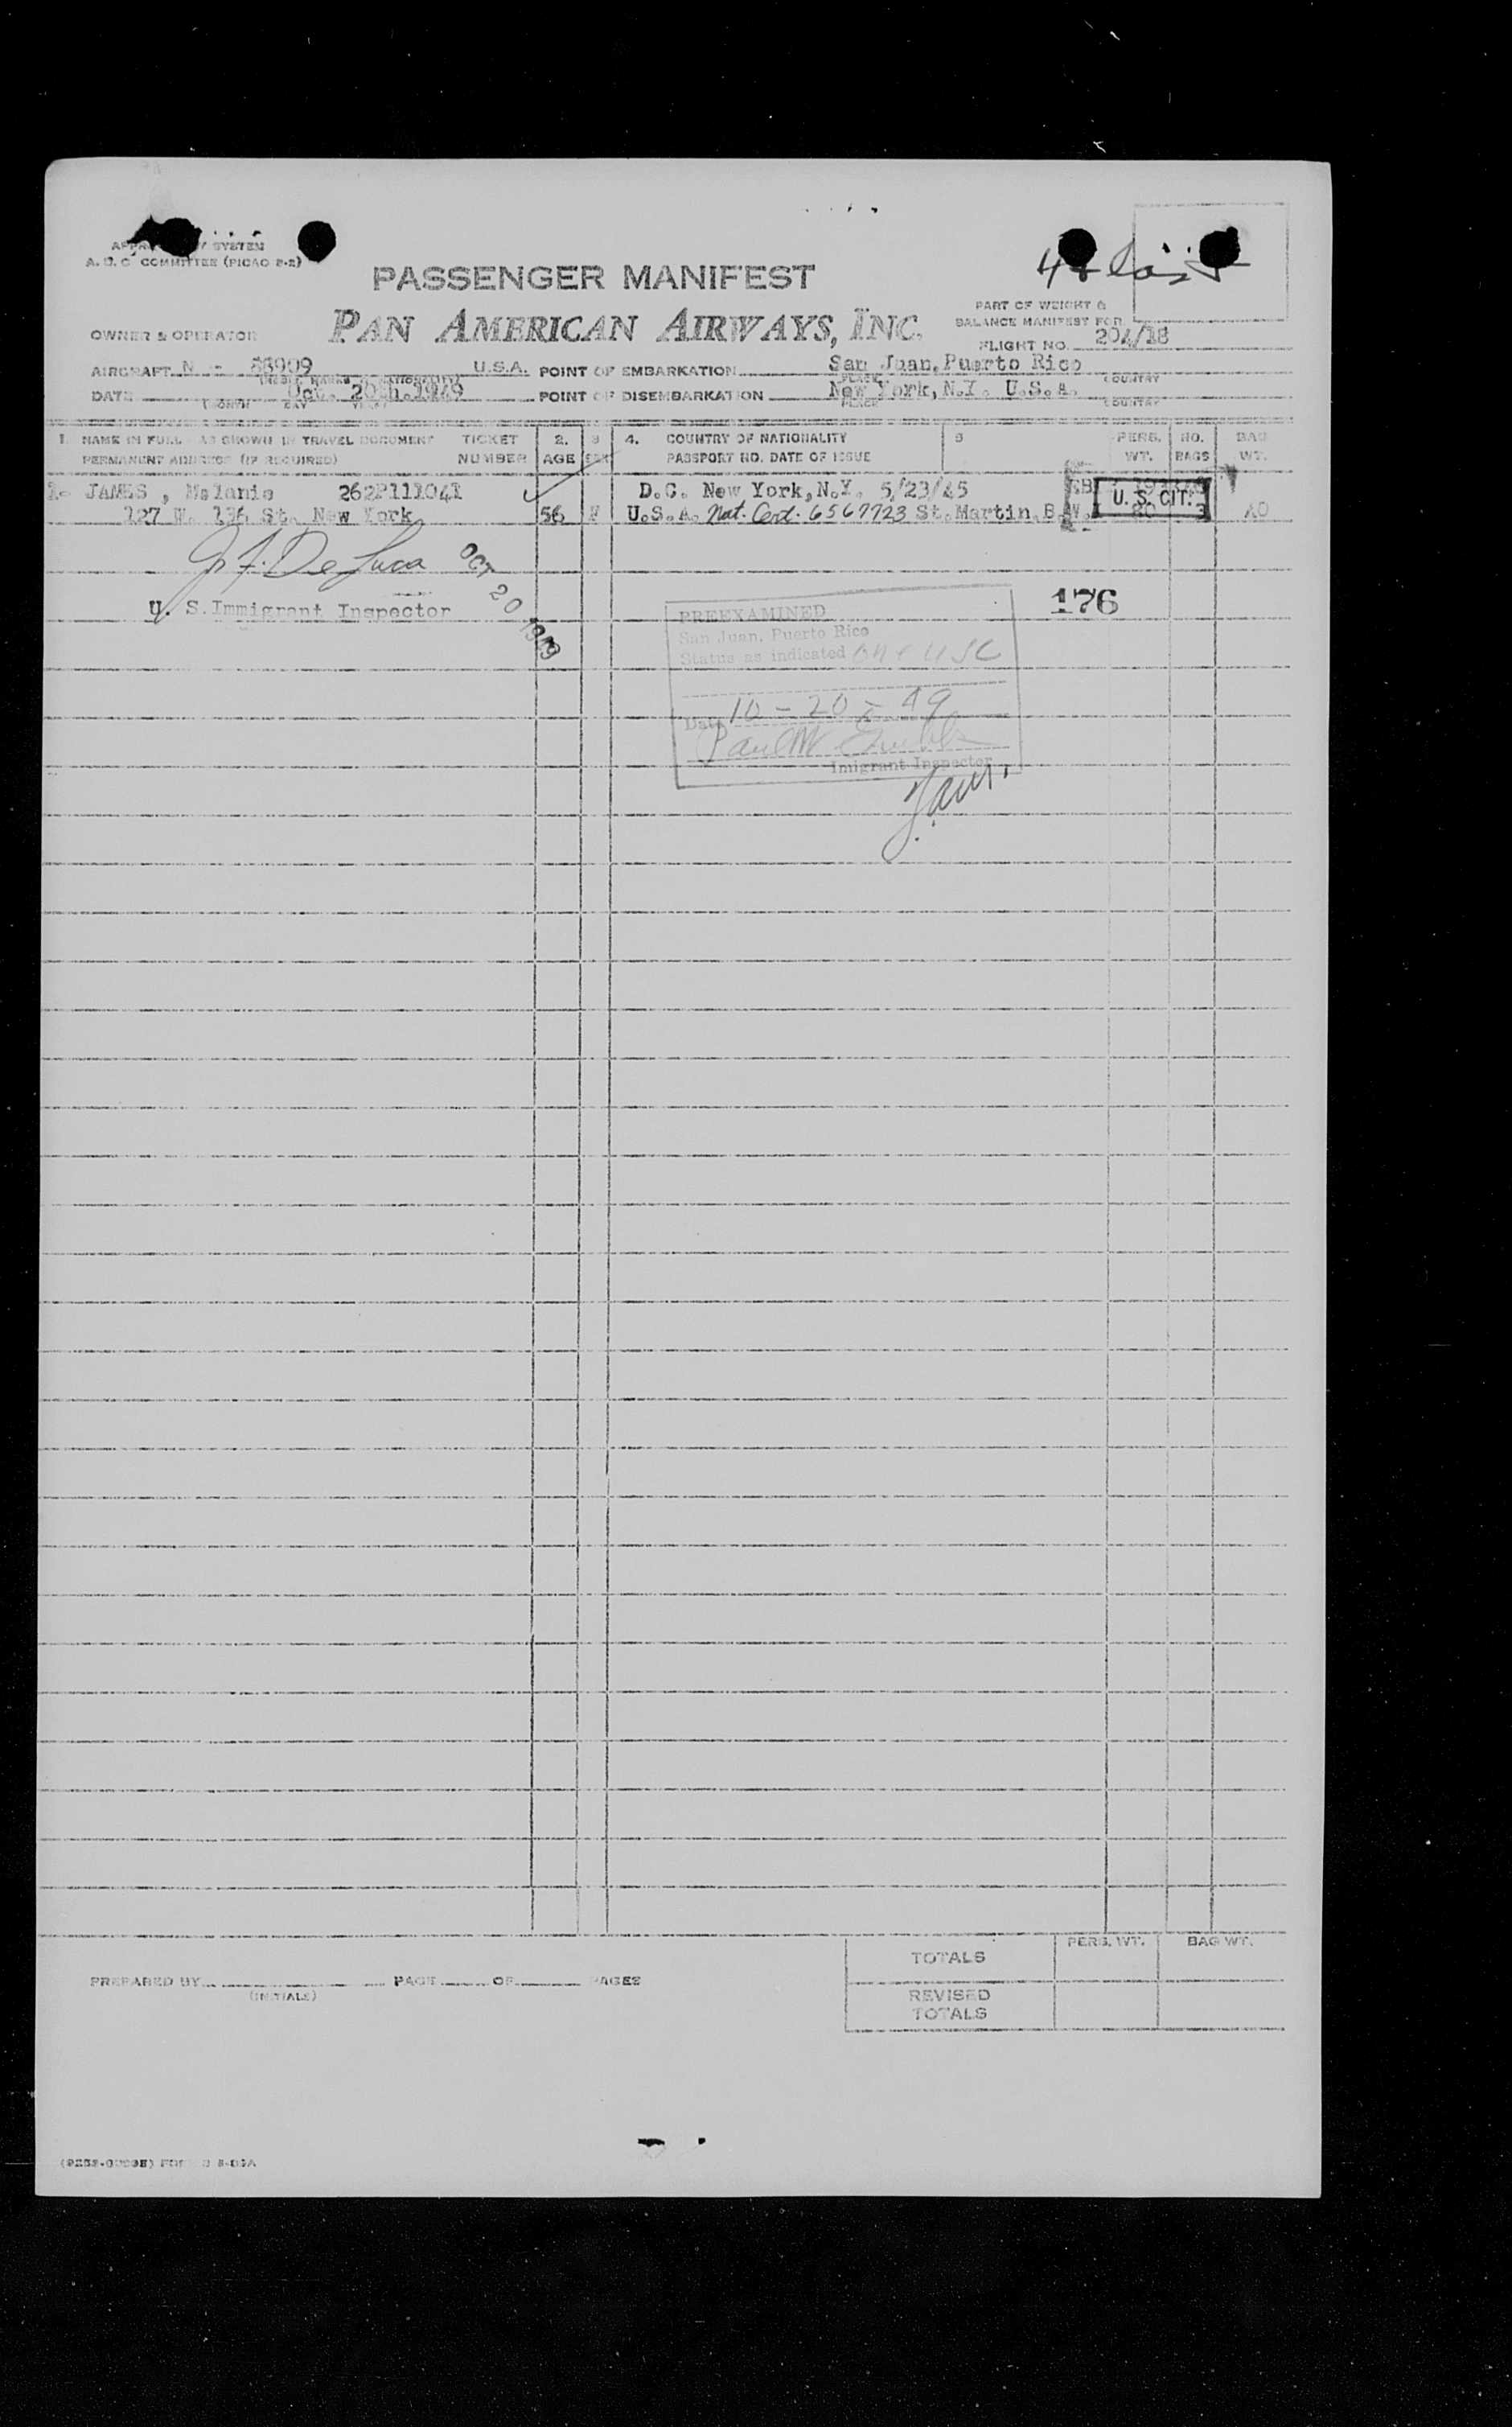 SYSTEM
A. D. C COMMITTEE (PICAO 2-2)
PASSENGER MANIFEST
PART OF WEIGHT &
BALANCE MANIFEST FOR
OWNER & OPERATOR PAN AMERICAN AIRWAYS, INC. FLIGHT NO. 204/18
AIRCRAFT N - 88909 U.S.A. POINT OF EMBARKATION San Juan, Puerto Rico
PLACE COUNTRY
DATE Oct. 20th. 1949 POINT OF DISEMBARKATION New York, N.Y. U.S.A.
MONTH DAY YEAR PLACE COUNTRY
1. NAME IN FULL AS SHOWN IN TRAVEL DOCUMENT TICKET 2. 3 4. COUNTRY OF NATIONALITY 5 PERS. NO. BAG
PERMANENT ADDRESS (IF REQUIRED) NUMBER AGE SEX PASSPORT NO. DATE OF ISSUE WT. BAGS WT.
JAMES , Melanie 262P111041 D.C. New York, N.Y. 5/23/45
127 W. 136 St. New York 56 F U.S.A. Nat. Cert. 6567723 St. Martin, B.W. U. S. CIT. 3 40
De Luca OCT 20 1949
U. S. Immigrant Inspector 176
PREEXAMINED
San Juan, Puerto Rico
Status as indicated USC
Date 10-20-49
Paul M
Imigrant Inspector
PERS. WT. BAG WT.
TOTALS
PREPARED BY PAGE OF PAGES
(INITIALS)
REVISED
TOTALS